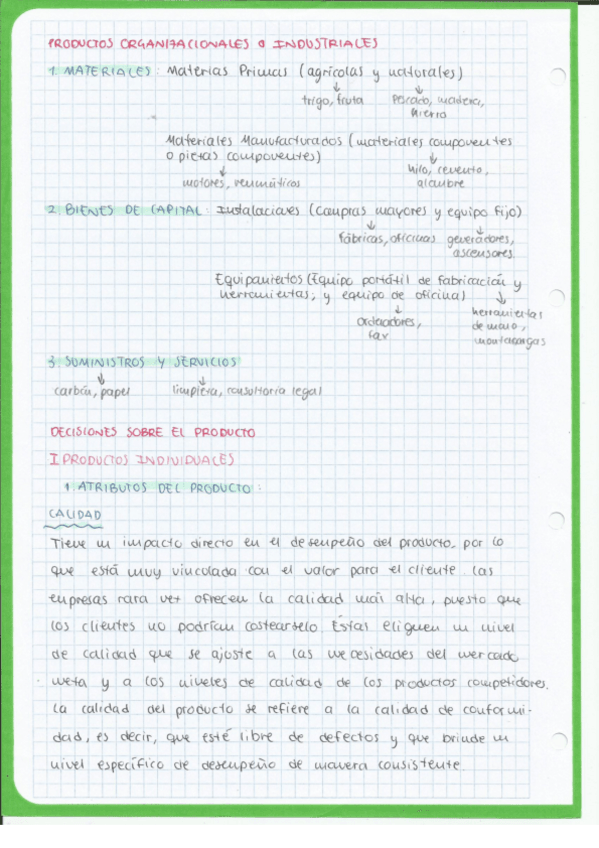 PRODUCTOS ORGANIZACIONALES O INDUSTRIALES
1. MATERIALES: Materias Primas (agrícolas y naturales)
trigo, fruta pescado, madera,
hierro
Materiales Manufacturados (materiales componentes
o piezas componentes)
hilo, cemento,
motores, neumáticos alambre
2. BIENES DE CAPITAL: Instalaciones (Compras mayores y equipo fijo)
fábricas, oficinas generadores,
ascensores
Equipamientos (Equipo portátil de fabricación y
herramientas, y equipo de oficina)
ordenadores, herramientas
fax de mano,
montacargas
3. SUMINISTROS Y SERVICIOS
carbón, papel limpieza, consultoría legal
DECISIONES SOBRE EL PRODUCTO
I PRODUCTOS INDIVIDUALES
1. ATRIBUTOS DEL PRODUCTO:
CALIDAD
Tiene un impacto directo en el desempeño del producto, por lo
que está muy vinculada con el valor para el cliente. Las
empresas rara vez ofrecen la calidad más alta, puesto que
los clientes no podrían costearselo. Éstas eligen un nivel
de calidad que se ajuste a las necesidades del mercado
meta y a los niveles de calidad de los productos competidores.
La calidad del producto se refiere a la calidad de conformi-
dad, es decir, que esté libre de defectos y que brinde un
nivel específico de desempeño de manera consistente.